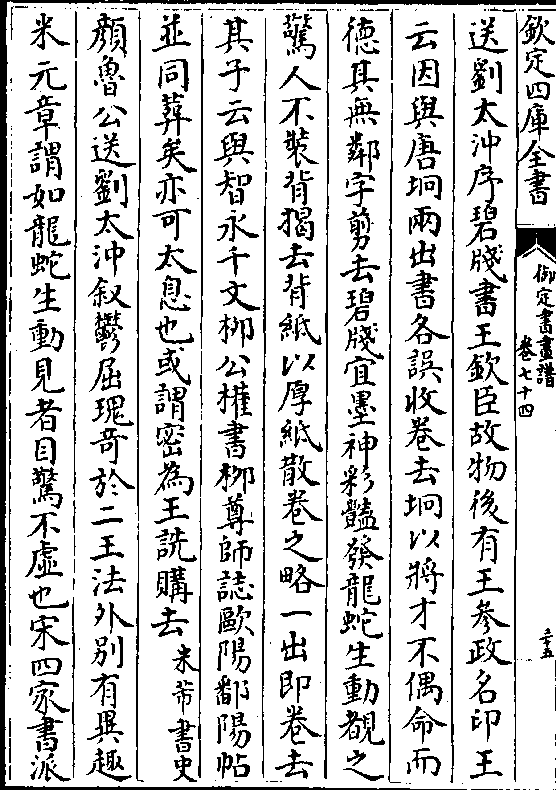 欽定四庫全書
御定書畫譜
卷七十四
三十五
送劉太沖序碧牋書王欽臣故物後有王參政名印王
云因與唐坰兩出書各誤收卷去坰以將才不偶命而
德其無鄰字剪去碧牋宜墨神彩豔發龍蛇生動覩之
驚人不裝背揭去背紙以厚紙散卷之略一出即卷去
其子云與智永千文柳公權書柳尊師誌歐陽鄱陽帖
並同葬矣亦可太息也或謂密為王詵購去米芾書史
顏魯公送劉太沖叙鬱屈瑰奇於二王法外別有異趣
米元章謂如龍蛇生動見者目驚不虛也宋四家書派